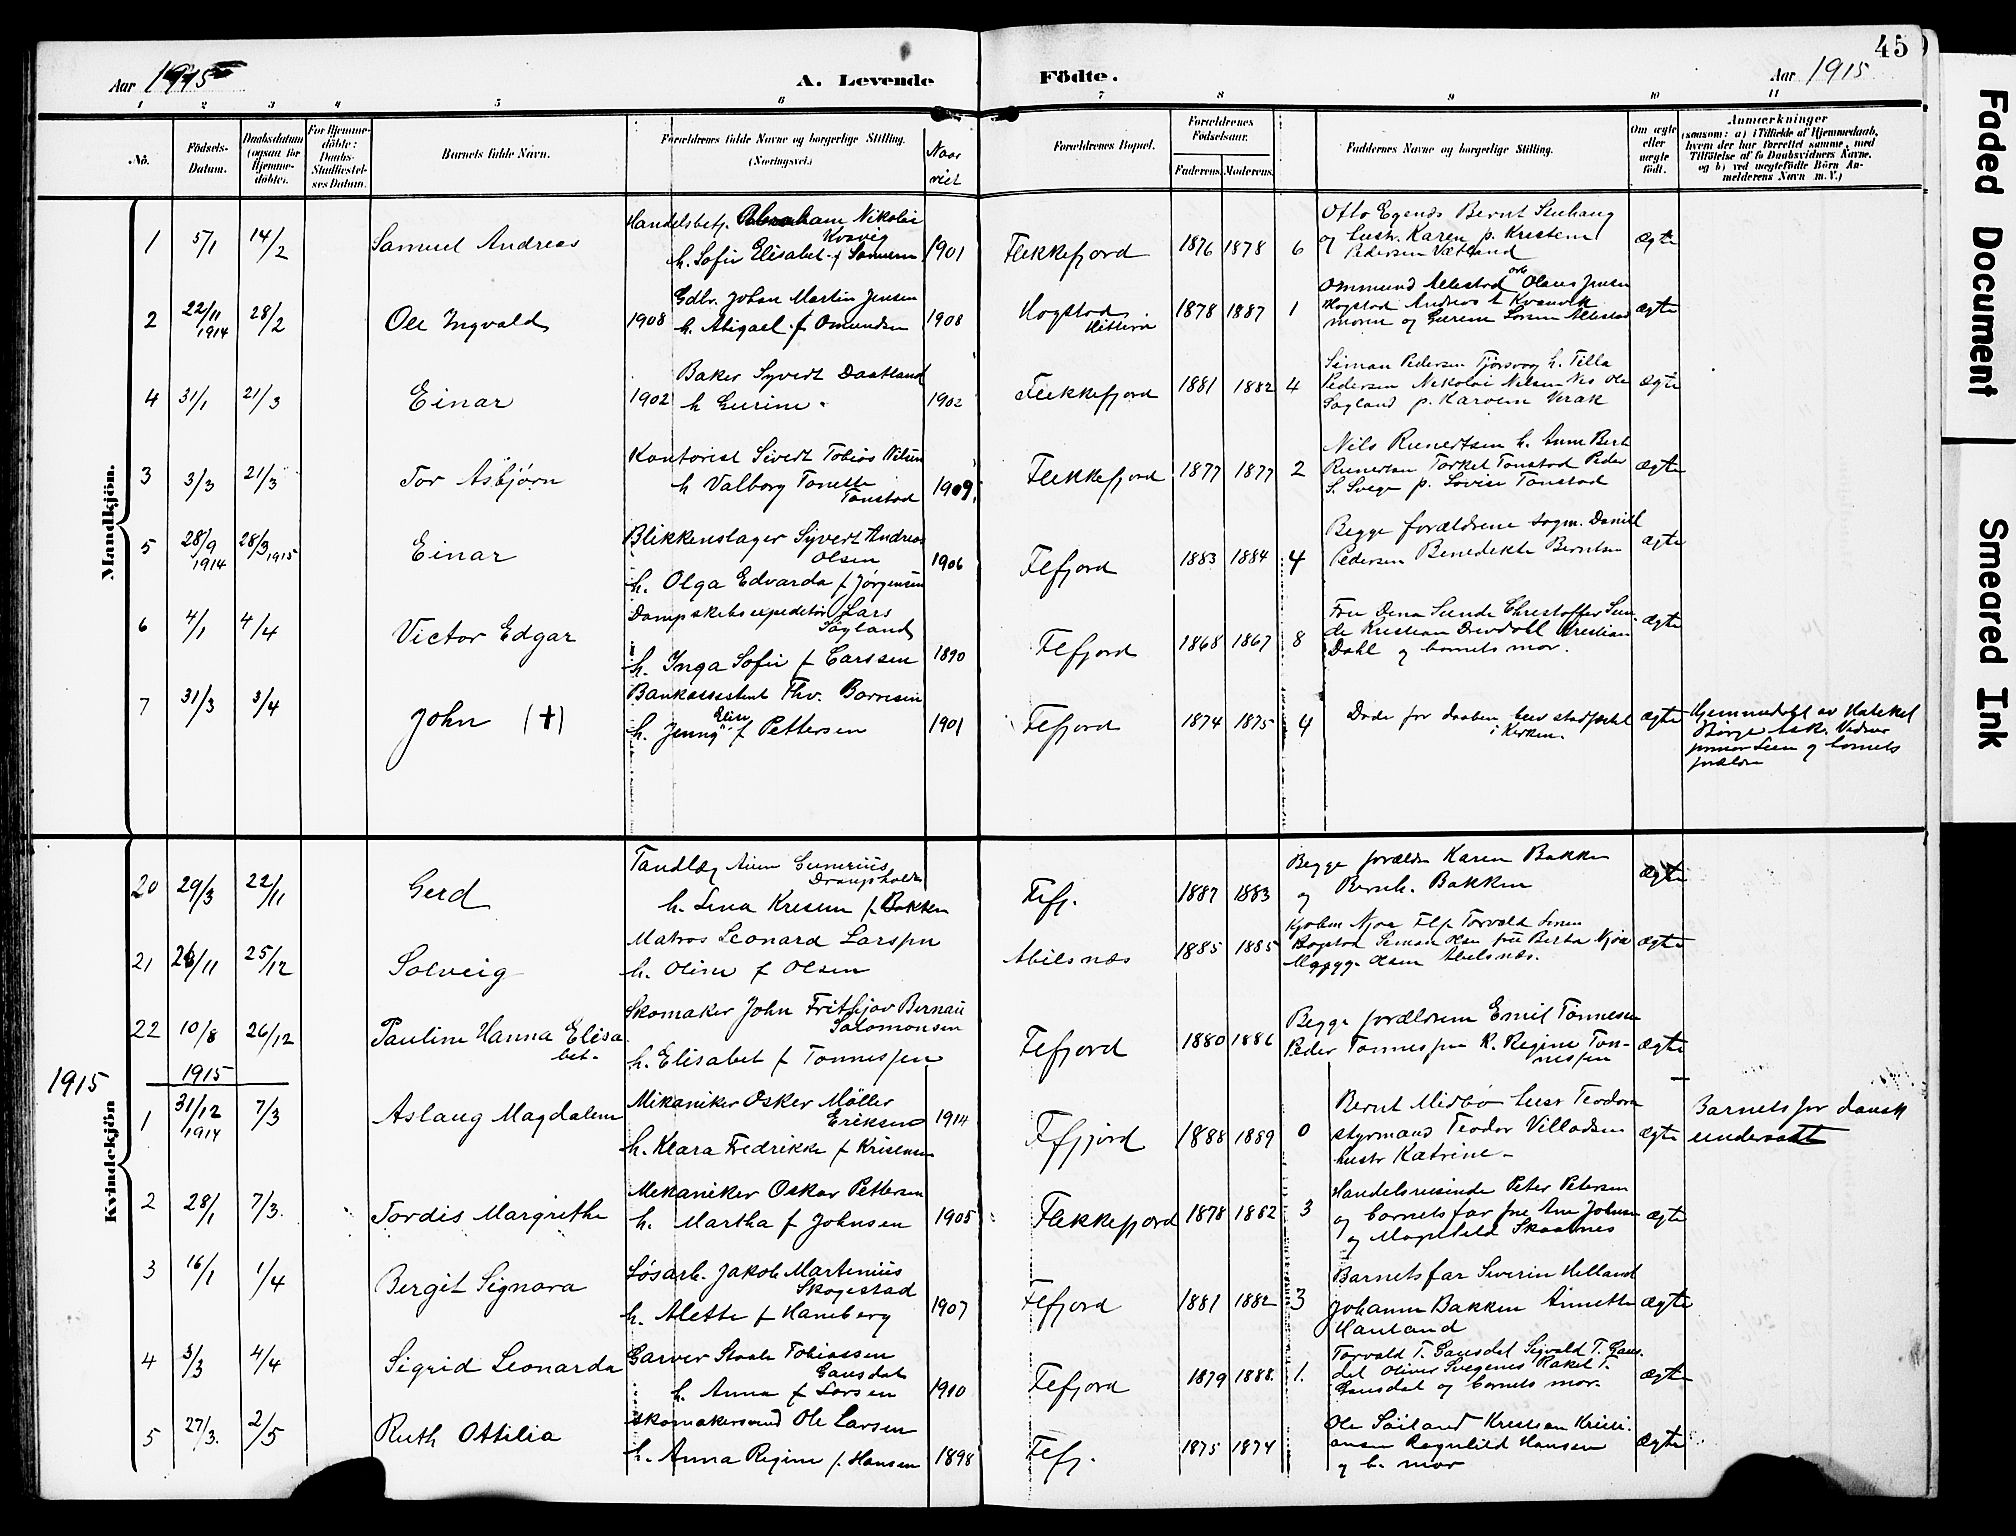 Aar 1915
A. Levende
Födte.
Aar 1915
45
1 2 3 4 5 6 7 8 9 10 11
No.
Födsels-
Datum.
Daabsdatum
(ogsaa for
Hjemme-
döbte).
For Hjemme-
döbte:
Daabs-
Stadfæstel-
ses Datum.
Barnets fulde Navn.
Forældrenes fulde Navne og borgerlige Stilling.
(Næringsvei.)
Naar
viet
Forældrenes Bopæl.
Forældrenes
Födselsaar.
Faderens. Moderens.
Faddernes Navne og borgerlige Stilling.
Om ægte
eller
uægte
født.
Anmærkninger
(saasom: a) i Tilfælde af Hjemmedaab,
hvem der har forrettet samme, med
Tilföielse af to Daabsvidners Navne,
og b) ved uægtefödte Börn An-
melderens Navn m. V.)
Mandkjön.
1 5/1 14/2 Samuel Andreas
Handelsbetj. Abraham Nikolai
Kvavig
h. Sofie Elisabet f
1901 Flekkefjord 1876 1878 6
Otto Egenes Bernt Stuhaug
og hustr. Karen p. Kristine
Pedersen
ægte
2 22/11 1914 28/2 Ole Ingvald
1908
Gdbr. Johan Martin Jensen
h. Abigael f Omundsen
1908 Hogstad
Hitterø
1878 1887 1
Ommund Allestad Olaus Jensen
Hogstad Andreas L Kvanvik
moren og Gurine Allestad
ægte
4 31/1 21/3 Einar
Baker Syvert Daatland
1902 h Gurine
1902 Flekkefjord 1881 1882 4
Simon Pedersen Tjørsvog h. Tilla
Pedersen Nikolai Nilsen Nes Ole
Søyland p. Karoline Virak
ægte
3 3/3 21/3 Tor Asbjørn
Kontorist Sivert Tobias Nilsen
h Valborg Tonette
Tonstad
1909 Flekkefjord 1877 1877 2
Nils Reinertsen h. Anne Bert
Reinertsen Torkel Tonstad Peder
S. Svege p. Lovise Tonstad
ægte
5 28/9 1914 28/3 1915 Einar
Blikkenslager Syvert Andreas
Olsen
h. Olga Edvarda f Jørgensen
1906 Flfjord 1883 1884 4
Begge forældrene sogn. Daniel
Pedersen Benedikte Berntsen
ægte
6 4/1 4/4 Victor Edgar
Dampskibsexpeditør Lars
Søyland
h. Inga Sofie f Larssen
1890 Flfjord 1868 1867 8
Fru Dina Sunde Christoffer Sun-
de Kristian Drevdahl Kristian
Dahl og barnets mor.
ægte
7 31/3 3/4 John (+)
Bankassistent Thv. Borresen
h. Jenny Elise f Pettersen
1901 Flfjord 1874 1875 4
Døde før daaben blev stadfæstet
i kirken.
ægte
Hjemmedøbt av Kateket
Børge Ask. Vidner
og barnets
forældre
Kvindekjön
20 29/3 22/11 Gerd
Tandlæg
h. Lina Kristine f. Bakken
Flfj. 1887 1883
Begge forældre Karen Bakken
og Bernh. Bakken
ægte
21 26/11 25/12 Solveig
Matros Leonard Larssen
h. Oline f Olsen
Abelsnæs 1885 1885
Njaa Flfj Torvald
Simon Olsen fru Berta Njaa
Olsen Abelsnæs.
ægte
22 10/8 26/12 Pauline Hanna Elisa
bet.
Skomaker John Frithjov Bernau
Salomonsen
h. Elisabet f Tønnessen
Flfjord 1880 1886
Begge forældrene Emil Tønnesen
Peder Tønnessen R. Regine Tøn-
nessen
ægte
1915
1915
1 31/12 1914 7/3 Aslaug Magdalene
Mekaniker Oskar Møller
Eriksen
h. Klara Fredrikke f Kristensen
1914 Flfjord 1888 1889 0
Bernt Midbø hustr Teodora
styrmand Teodor Villadsen
hustr Katrine
ægte
Barnets far dansk
undersaat
2 28/1 7/3. Tordis Margrethe
Mekaniker Oskar Pettersen
h. Martha f Johnsen
1905 Flekkefjord 1878 1882 3
Handelsreisende Peter Petersen
og barnets far fru Ane Johnsen
og Skaalnes
ægte
3 16/1 1/4 Bergit Signora
Løsarb. Jakob Martenius
Skogestad
h. Alette f Haneberg
1907 Flfjord 1881 1882 3
Barnets far Severin Helland
Johanne Bakken Annette
Hauland
ægte
4 3/3 4/4 Sigrid Leonarda
Garver Staale Tobiassen
Gausdal
h. Anna f Larsen
1910 Flfjord 1879 1888 1.
Torvald T. Gausdal Sigvald T. Gaus-
dal Oliver Svegenes Rakel T.
Gausdal og barnets mor.
ægte
5 27/3. 2/5 Ruth Ottilia
Skomakersvend Ole Larsen
h. Anna Regine f. Hansen
1898 Flfj. 1875 1874
Ole Søiland Kristian Kristi-
ansen Ragnhild Hansen
og b. mor
ægte
Faded Document
Smeared Ink